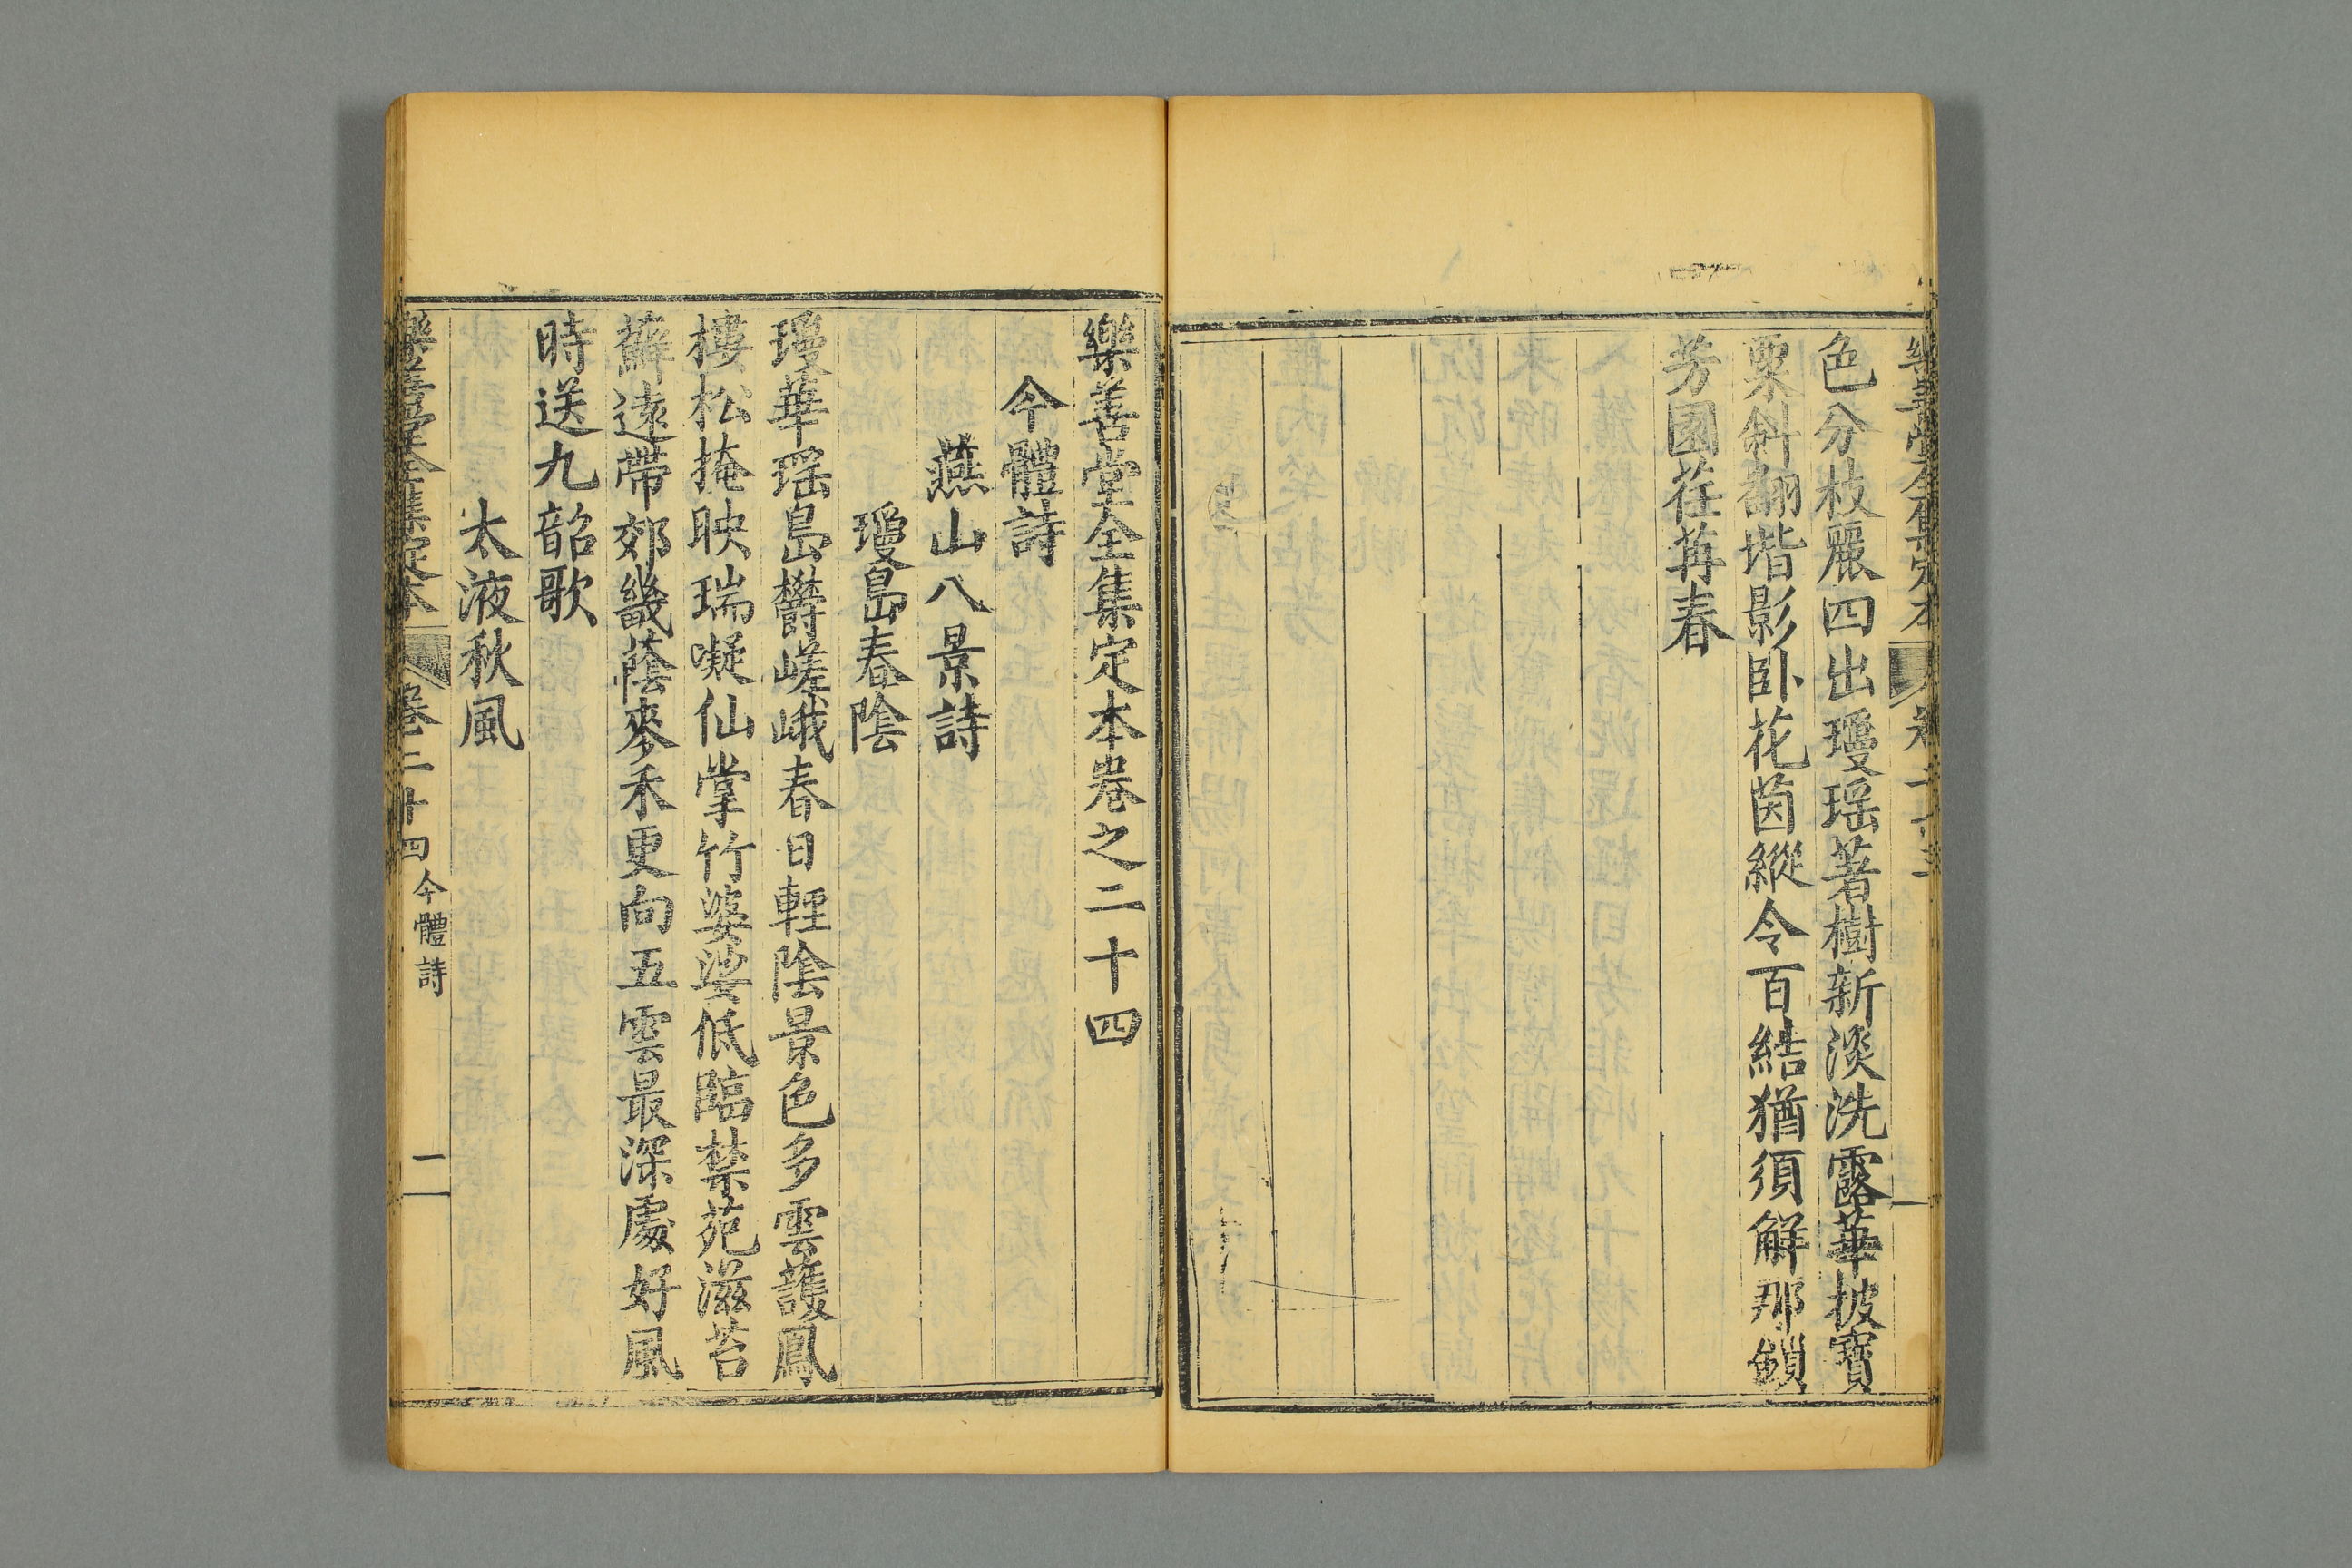 色分枝麗四出瓊瑶著樹新淡洗露華披寶
粟斜翻堦影卧花茵縱令百結猶須解那鎖
芳園荏苒春
樂善堂全集定本卷之二十四
今體詩
燕山八景詩
瓊島春陰
瓊華瑶島欝嵯峨春日輕陰景色多雲護鳳
樓松掩映瑞凝仙掌竹婆娑低臨禁苑滋苔
蘚遠帶郊畿蔭麥禾更向五雲最深處好風
時送九韶歌
太液秋風
樂善堂全集定本 卷二十四 今體詩 一